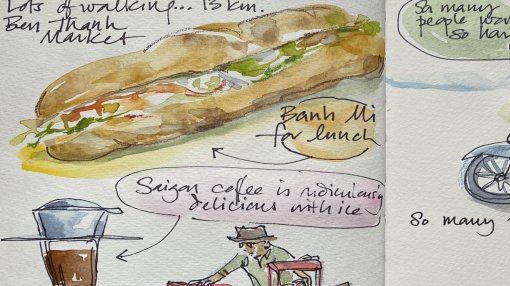 Lots of walking... 13 km.
Ben Thanh
Market
Banh Mi
for lunch
Saigon coffee is ridiculously
delicious with ice
So many
people
so
So many